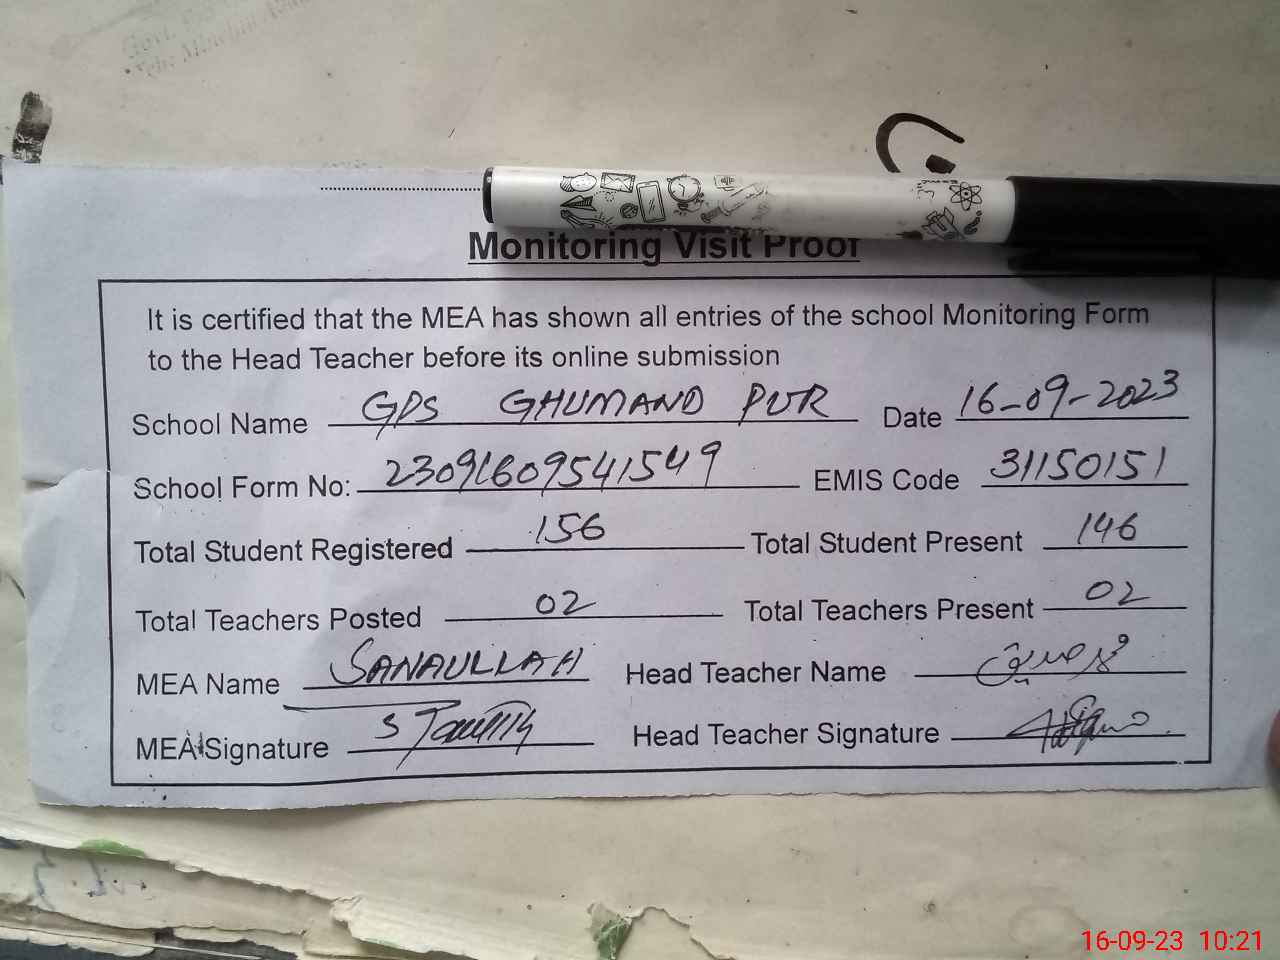 Monitoring Visit Proof
It is certified that the MEA has shown all entries of the school Monitoring Form
to the Head Teacher before its online submission
School Name GPS GHUMAND PUR Date 16-09-2023
School Form No: 23091609541549 EMIS Code 31150151
Total Student Registered 156 Total Student Present 146
Total Teachers Posted 02 Total Teachers Present 02
MEA Name SANAULLAH Head Teacher Name
MEA Signature Head Teacher Signature
16-09-23 10:21